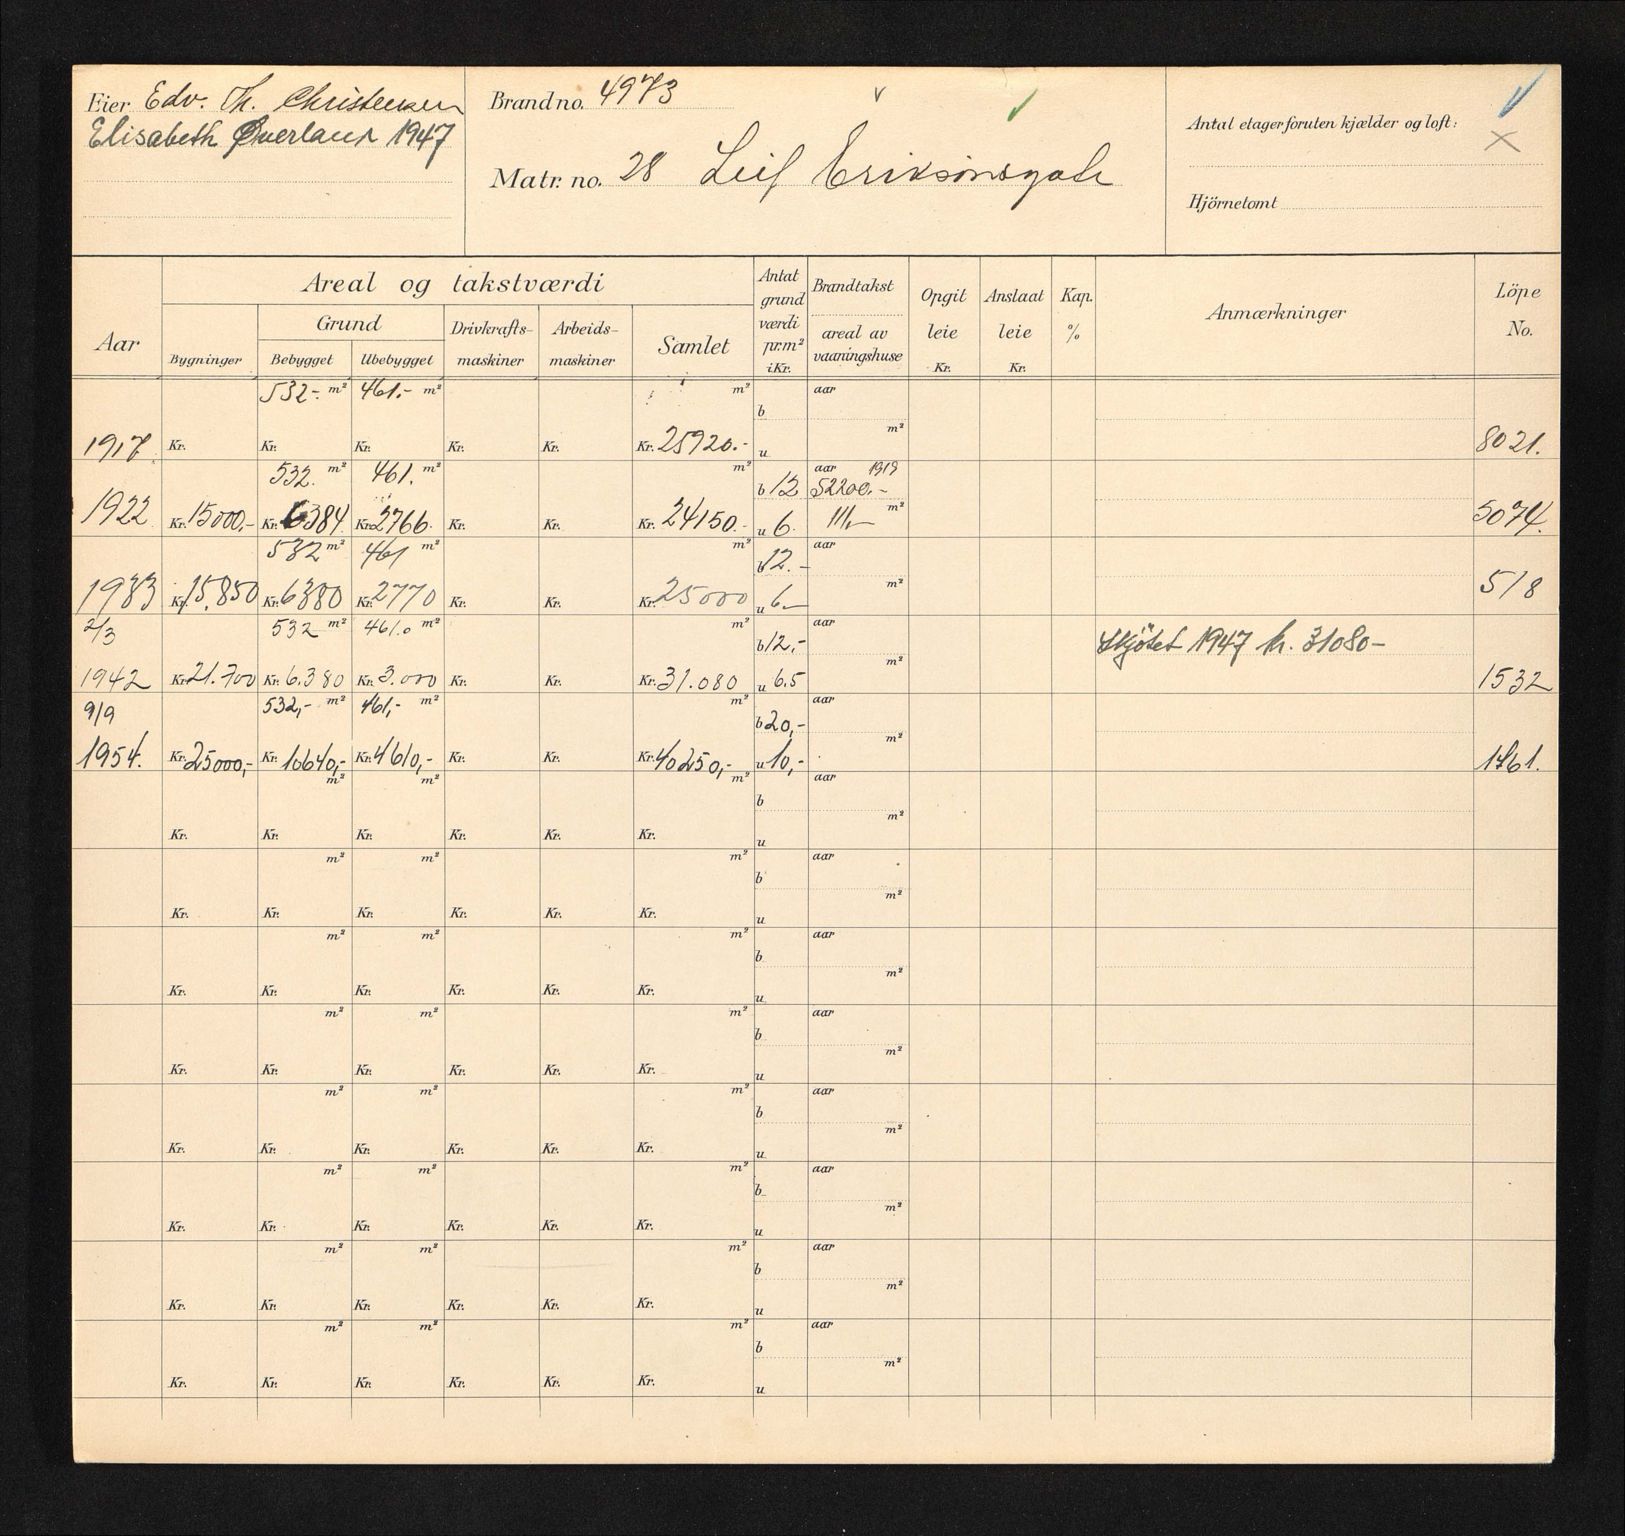 Eier Edv. Th. Christensen
Elisabeth Øverland 1947
Brand no. 4973
Matr. no. 28 Leif Eriksønsgate
Antal etager foruten kjælder og loft:
Hjörnetomt
Aar
Areal og takstværdi
Bygninger
Grund
Bebygget
Ubebygget
Drivkrafts-
maskiner
Arbeids-
maskiner
Samlet
Antat
grund
værdi
pr.m²
i Kr.
Brandtakst
areal av
vaaningshuse
Opgit
leie
Kr.
Anslaat
leie
Kr.
Kap.
%
Anmærkninger
Löpe
No.
532.- m² 461.- m² m² b aar
1917. Kr. Kr. Kr. Kr. Kr. Kr. 25920.- u m² 8021.
532. m² 461. m² m² b 12 aar 1919
52200.-
1922 Kr. 15000,- Kr. 6384. Kr. 2766. Kr. Kr. Kr. 24150.- u 6. 111,- m² 5074.
532 m² 461 m² m² b 12.- aar
1933 Kr. 15.850 Kr. 6380 Kr. 2770 Kr. Kr. Kr. 25000 u 6.- m² 518
2/3 532 m² 461.0 m² m² b 12,- aar Skjötet 1947 kr. 31080-
1942 Kr. 21.700 Kr. 6.380 Kr. 3.000 Kr. Kr. Kr. 31.080 u 6.5 m² 1532
9/9 532,- m² 461,- m² m² b 20,- aar
1954. Kr. 25000,- Kr. 10640,- Kr. 4610,- Kr. Kr. Kr. 40250,- u 10,- m² 1461.
m² m² m² b aar
Kr. Kr. Kr. Kr. Kr. Kr. u m²
m² m² m² b aar
Kr. Kr. Kr. Kr. Kr. Kr. u m²
m² m² m² b aar
Kr. Kr. Kr. Kr. Kr. Kr. u m²
m² m² m² b aar
Kr. Kr. Kr. Kr. Kr. Kr. u m²
m² m² m² b aar
Kr. Kr. Kr. Kr. Kr. Kr. u m²
m² m² m² b aar
Kr. Kr. Kr. Kr. Kr. Kr. u m²
m² m² m² b aar
Kr. Kr. Kr. Kr. Kr. Kr. u m²
m² m² m² b aar
Kr. Kr. Kr. Kr. Kr. Kr. u m²